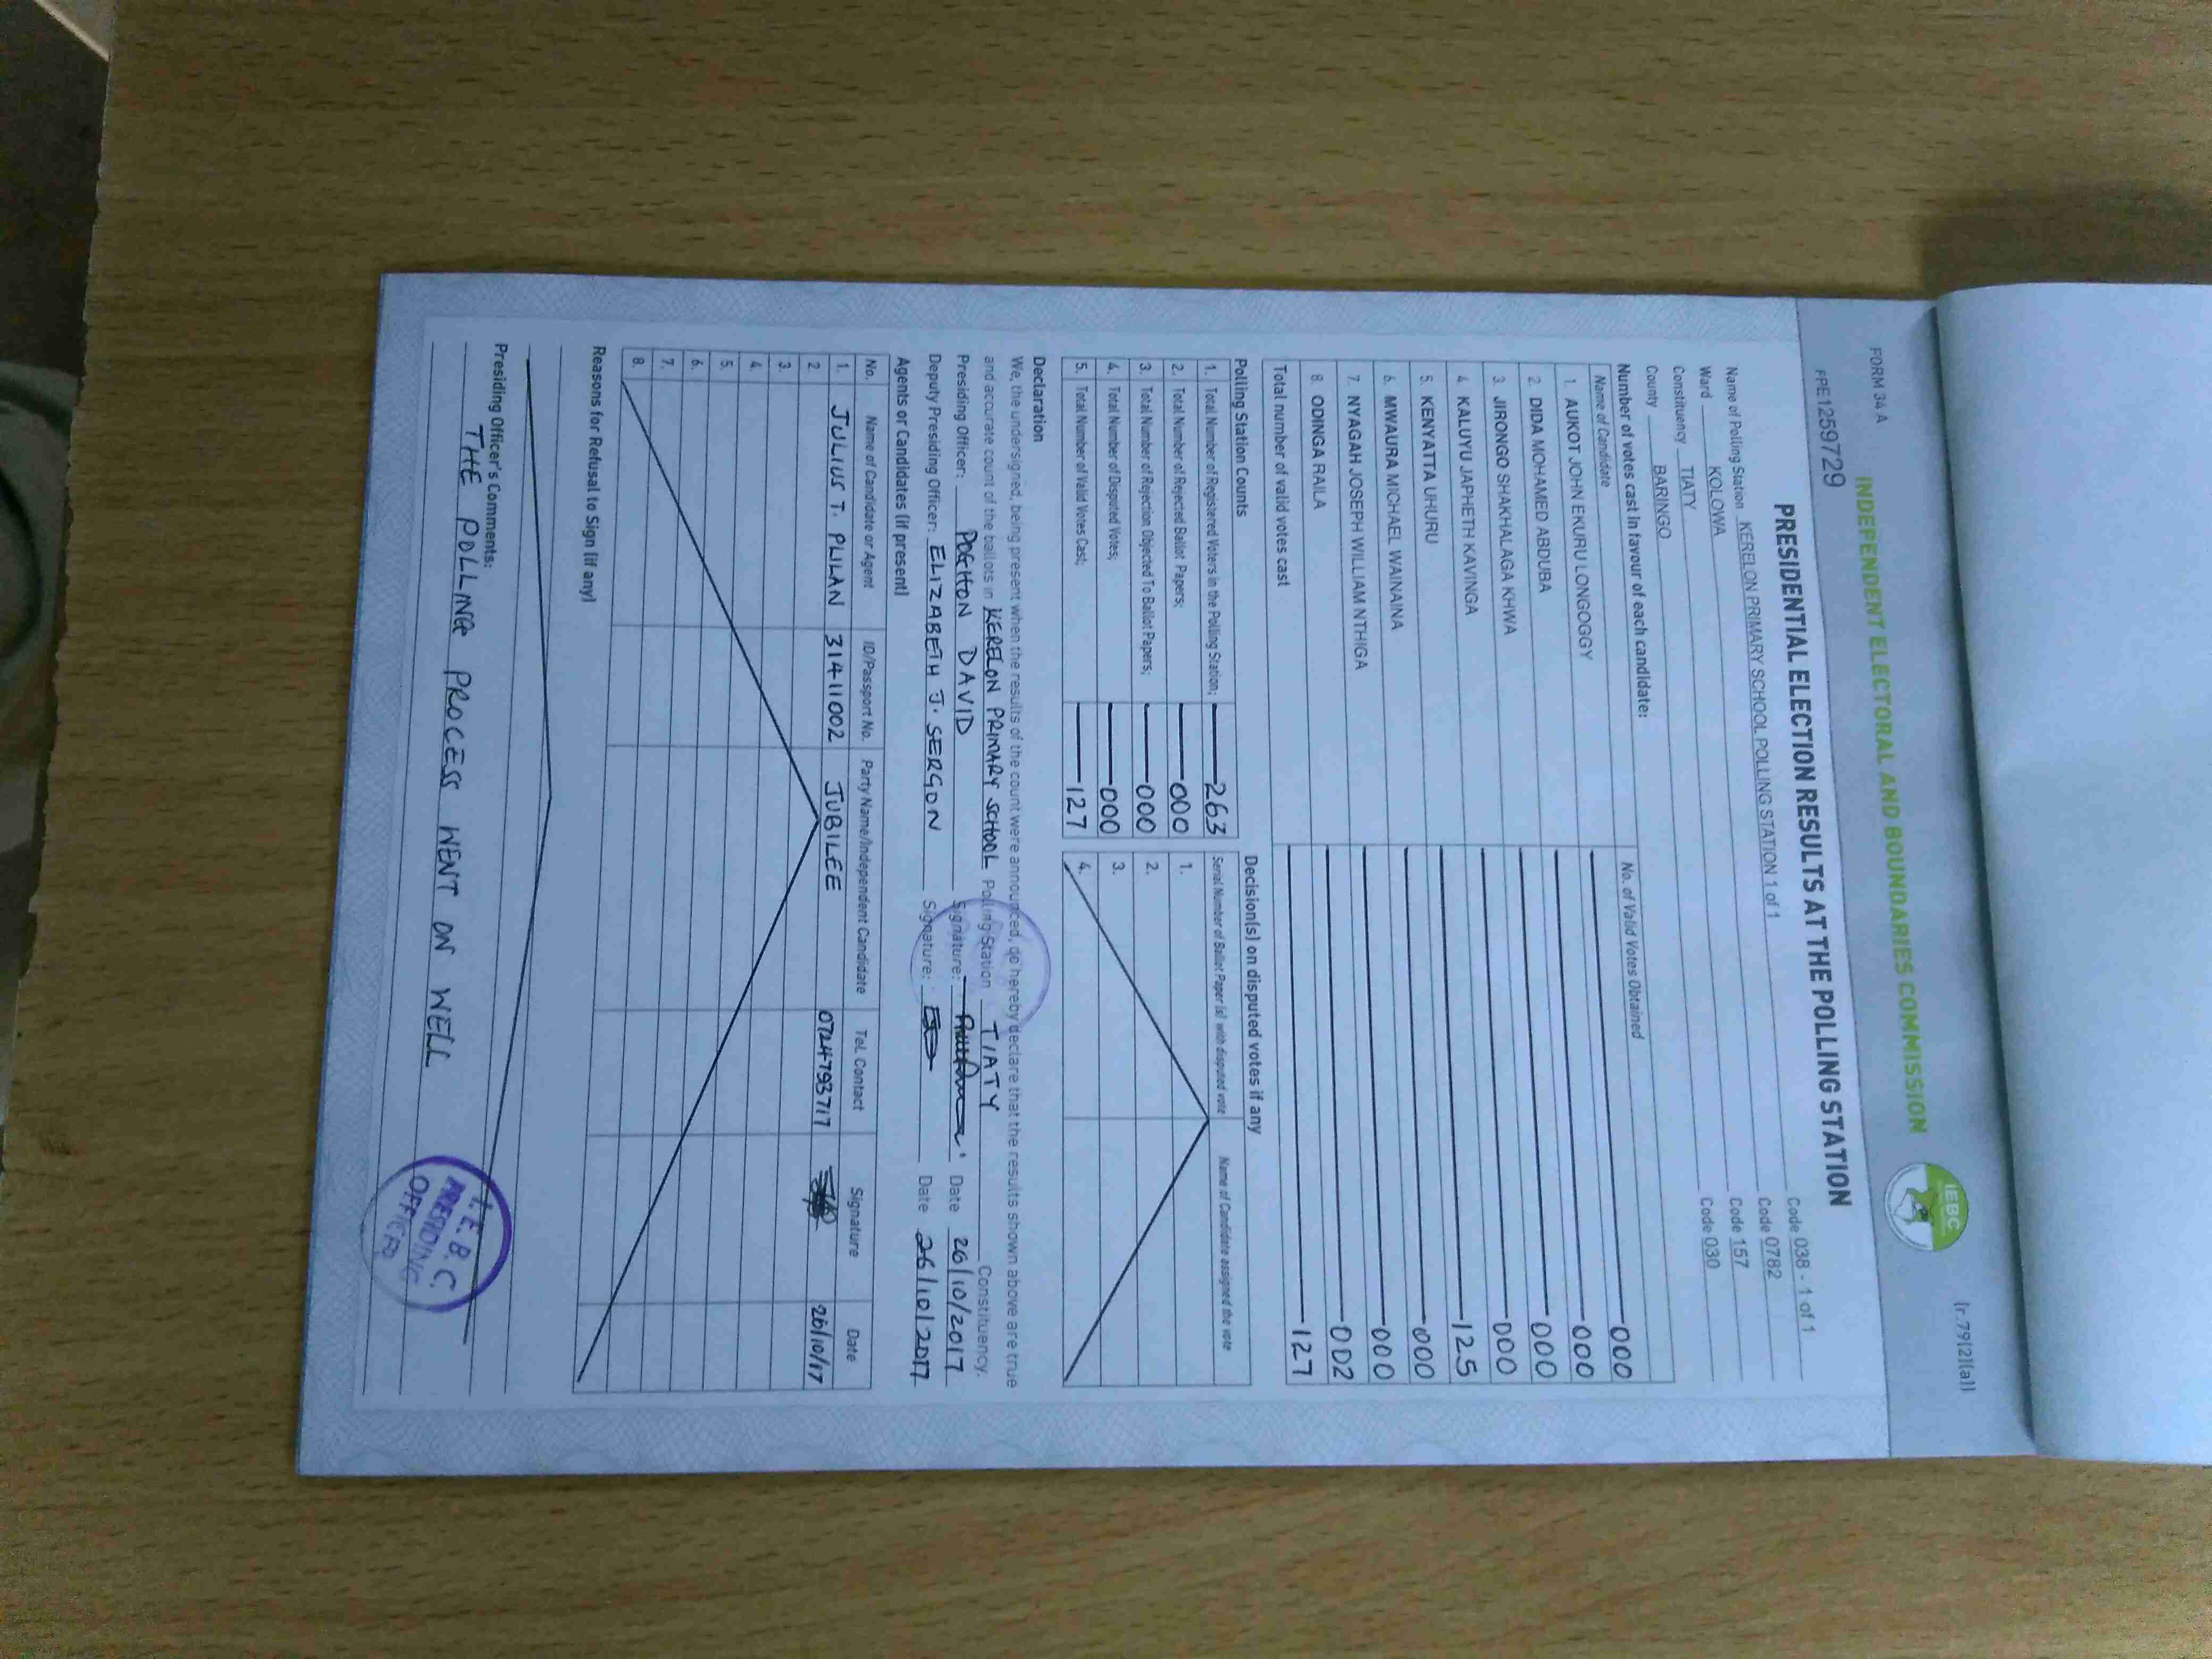 FORM 34 A
(r.79(2)(a))
INDEPENDENT ELECTORAL AND BOUNDARIES COMMISSION
IEBC
PPE1259729
PRESIDENTIAL ELECTION RESULTS AT THE POLLING STATION
Name of Polling Station KERELON PRIMARY SCHOOL POLLING STATION 1 of 1 Code 038 - 1 of 1
Ward KOLOWA Code 0782
Constituency TIATY Code 157
County BARINGO Code 030
Number of votes cast in favour of each candidate:
Name of Candidate No. of Valid Votes Obtained
1. AUKOT JOHN EKURU LONGOGGY 000
2. DIDA MOHAMED ABDUBA 000
3. JIRONGO SHAKHALAGA KHWA 000
4. KALUYU JAPHETH KAVINGA 000
5. KENYATTA UHURU 125
6. MWAURA MICHAEL WAINAINA 000
7. NYAGAH JOSEPH WILLIAM NTHIGA 000
8. ODINGA RAILA 002
Total number of valid votes cast 127
Polling Station Counts
1. Total Number of Registered Voters in the Polling Station; 263
2. Total Number of Rejected Ballot Papers; 000
3. Total Number of Rejection Objected To Ballot Papers; 000
4. Total Number of Disputed Votes; 000
5. Total Number of Valid Votes Cast; 127
Decision(s) on disputed votes if any
Serial Number of Ballot Paper (s) with disputed vote Name of Candidate assigned the vote
1.
2.
3.
4.
Declaration
We, the undersigned, being present when the results of the count were announced, do hereby declare that the results shown above are true
and accurate count of the ballots in KERELON PRIMARY SCHOOL Polling Station TIATY Constituency.
Presiding Officer: POGHON DAVID Signature: Date 26/10/2017
Deputy Presiding Officer: ELIZABETH J. SERGON Signature: Date 26/10/2017
Agents or Candidates (if present)
No. Name of Candidate or Agent ID/Passport No. Party Name/Independent Candidate Tel. Contact Signature Date
1. JULIUS T. PLILAN 31411002 JUBILEE 0724793717 26/10/17
2.
3.
4.
5.
6.
7.
8.
Reasons for Refusal to Sign (if any)
Presiding Officer's Comments:
THE POLLING PROCESS WENT ON WELL
I.E.B.C.
PRESIDING
OFFICER